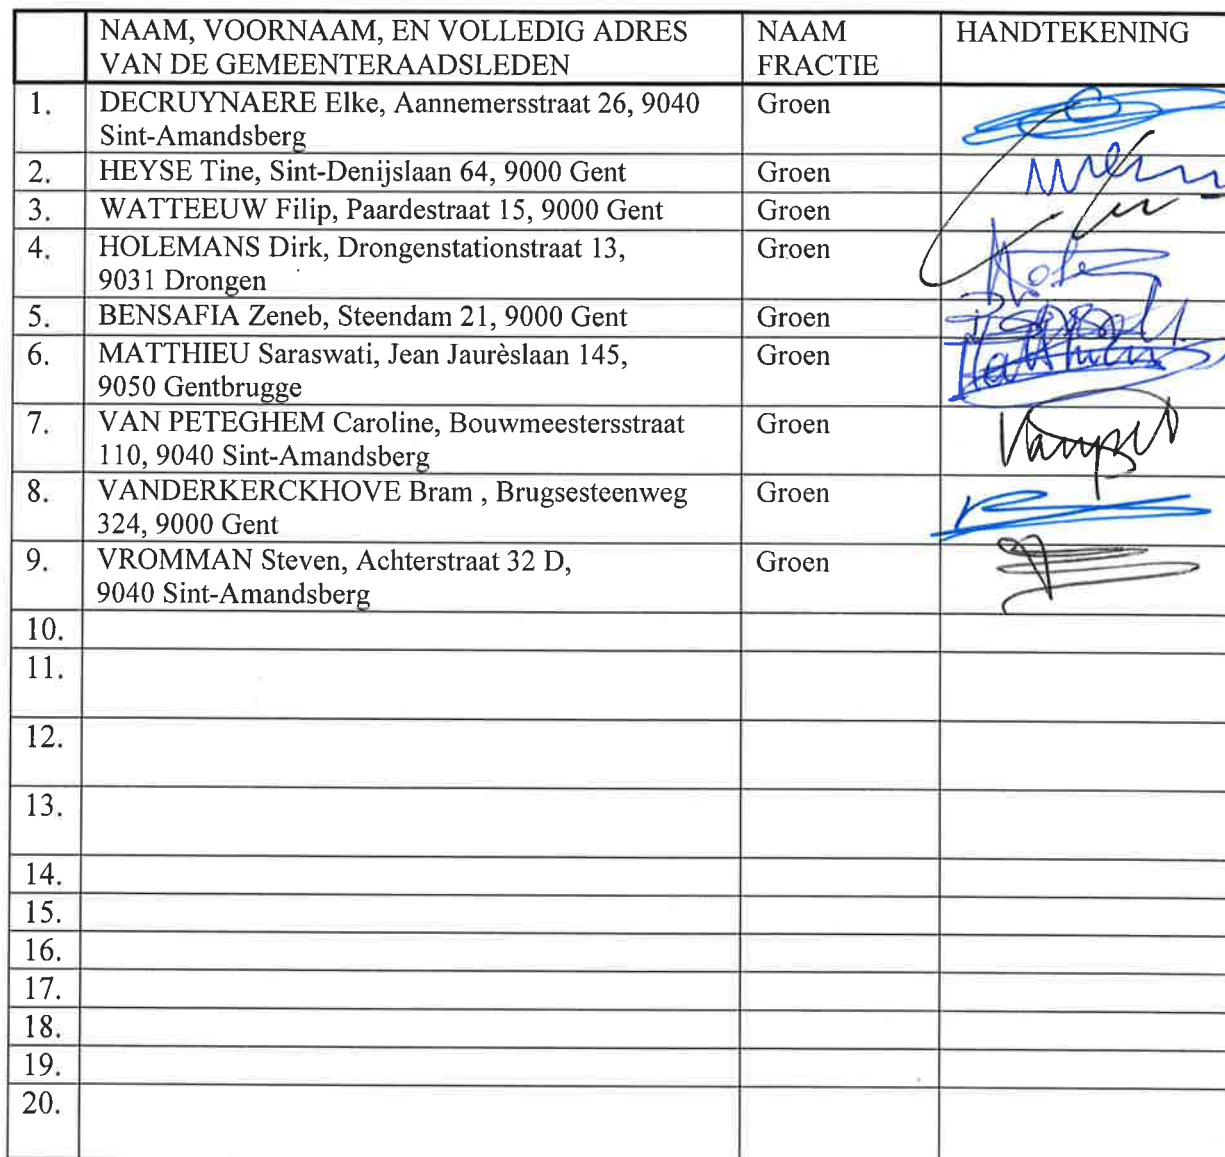 NAAM, VOORNAAM, EN VOLLEDIG ADRES VAN DE GEMEENTERAADSLEDEN NAAM FRACTIE HANDTEKENING
1. DECRUYNAERE Elke, Aannemersstraat 26, 9040 Groen
Sint-Amandsberg
2. HEYSE Tine, Sint-Denijslaan 64, 9000 Gent Groen
3. WATTEEUW Filip, Paardestraat 15, 9000 Gent Groen
4. HOLEMANS Dirk, Drongenstationstraat 13, Groen
9031 Drongen
5. BENSAFIA Zeneb, Steendam 21, 9000 Gent Groen
6. MATTHIEU Saraswati, Jean Jaurèslaan 145, Groen
9050 Gentbrugge
7. VAN PETEGHEM Caroline, Bouwmeestersstraat Groen
110, 9040 Sint-Amandsberg
8. VANDERKERCKHOVE Bram , Brugsesteenweg Groen
324, 9000 Gent
9. VROMMAN Steven, Achterstraat 32 D, Groen
9040 Sint-Amandsberg
10.
11.
12.
13.
14.
15.
16.
17.
18.
19.
20.